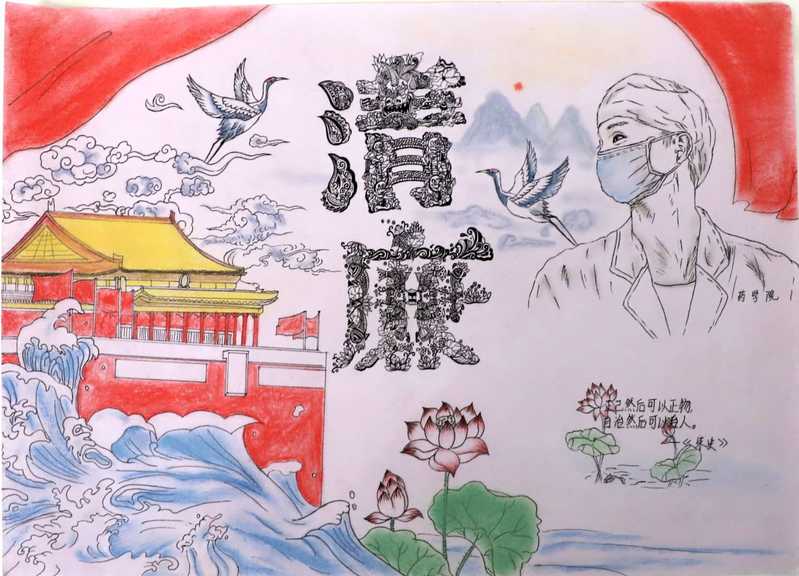 清
廉
药学院
正己然后可以正物,
自治然后可以治人。
《宋史》